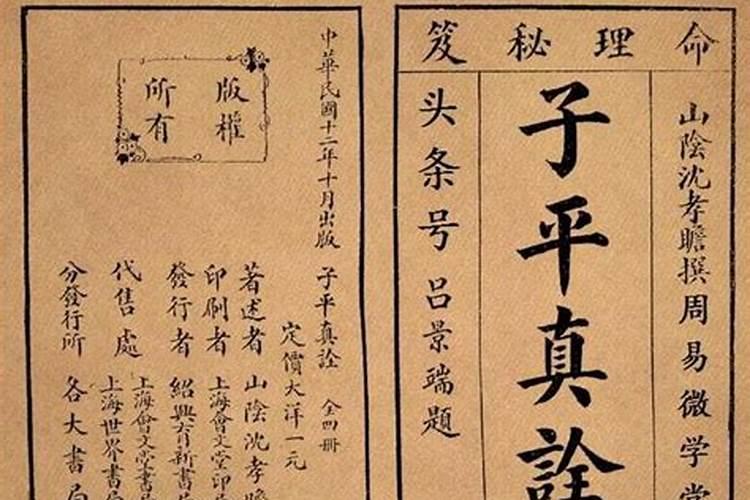 命理秘笈
山陰沈孝瞻撰周易微学堂
子平真詮
头条号吕景瑞題
中華民國十二年十月出版
版權
所有
子平真詮 全四冊
定價大洋一元
著述者 山陰沈孝瞻
印刷者 上海會文堂印
發行者 紹興育新書
代售處 上海會文堂書
上海世界書局
分發行所 各大書局